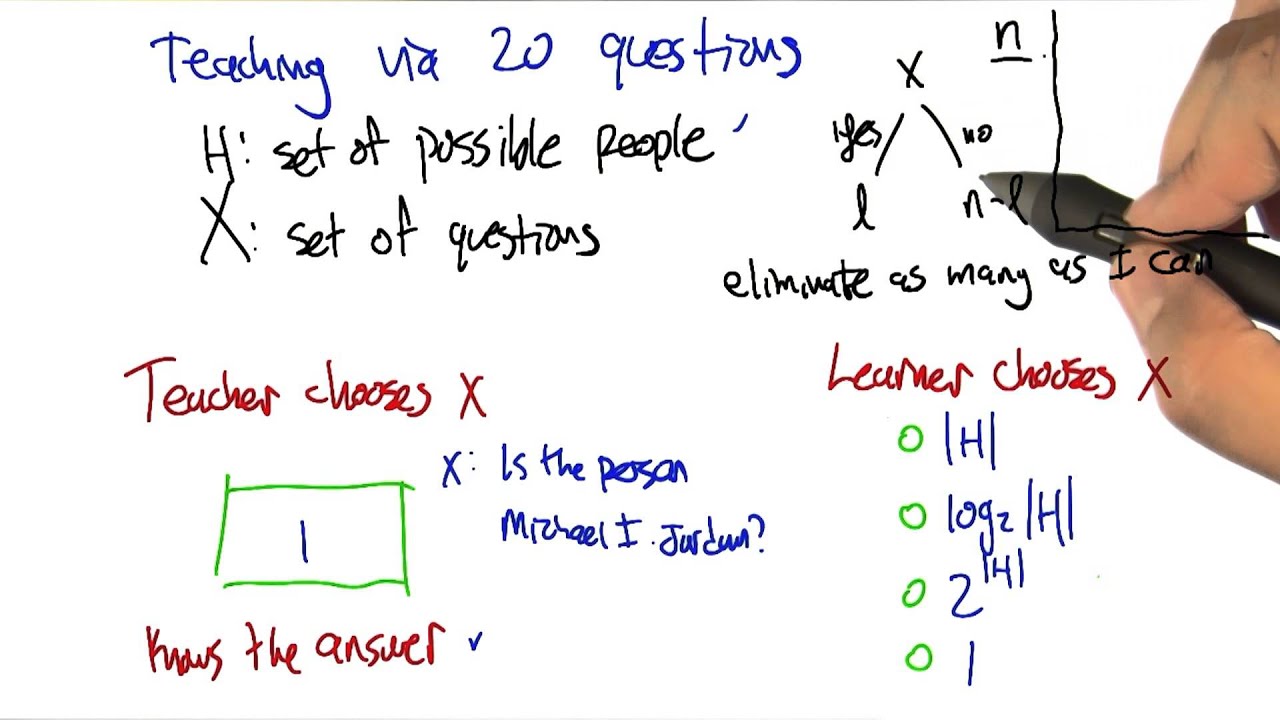 Teaching via 20 questions
H: set of possible people
X: set of questions
n
X
yes no
l n-l
eliminate as many as I can
Teacher chooses X
1
X: Is the person
Michael I. Jordan?
Knows the answer
Learner chooses X
|H|
log₂ |H|
2^|H|
1